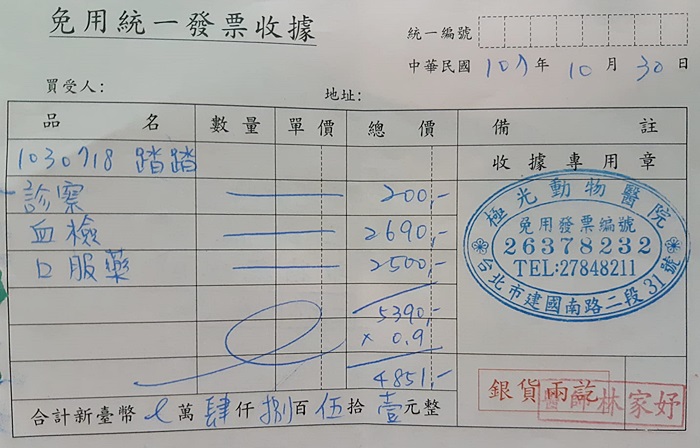 免用統一發票收據
統一編號
中華民國 107 年 10 月 30 日
買受人： 地址：
品名 數量 單價 總價 備註
1030718 踏踏 收據專用章
診察 200,-
血檢 2690,-
口服藥 2500,-
5390,-
x 0.9
4851,-
合計新臺幣 萬 肆 仟 捌 百 伍 拾 壹 元整
極光動物醫院
免用發票編號
26378232
TEL:27848211
台北市建國南路二段31號
銀貨兩訖
醫師林家妤